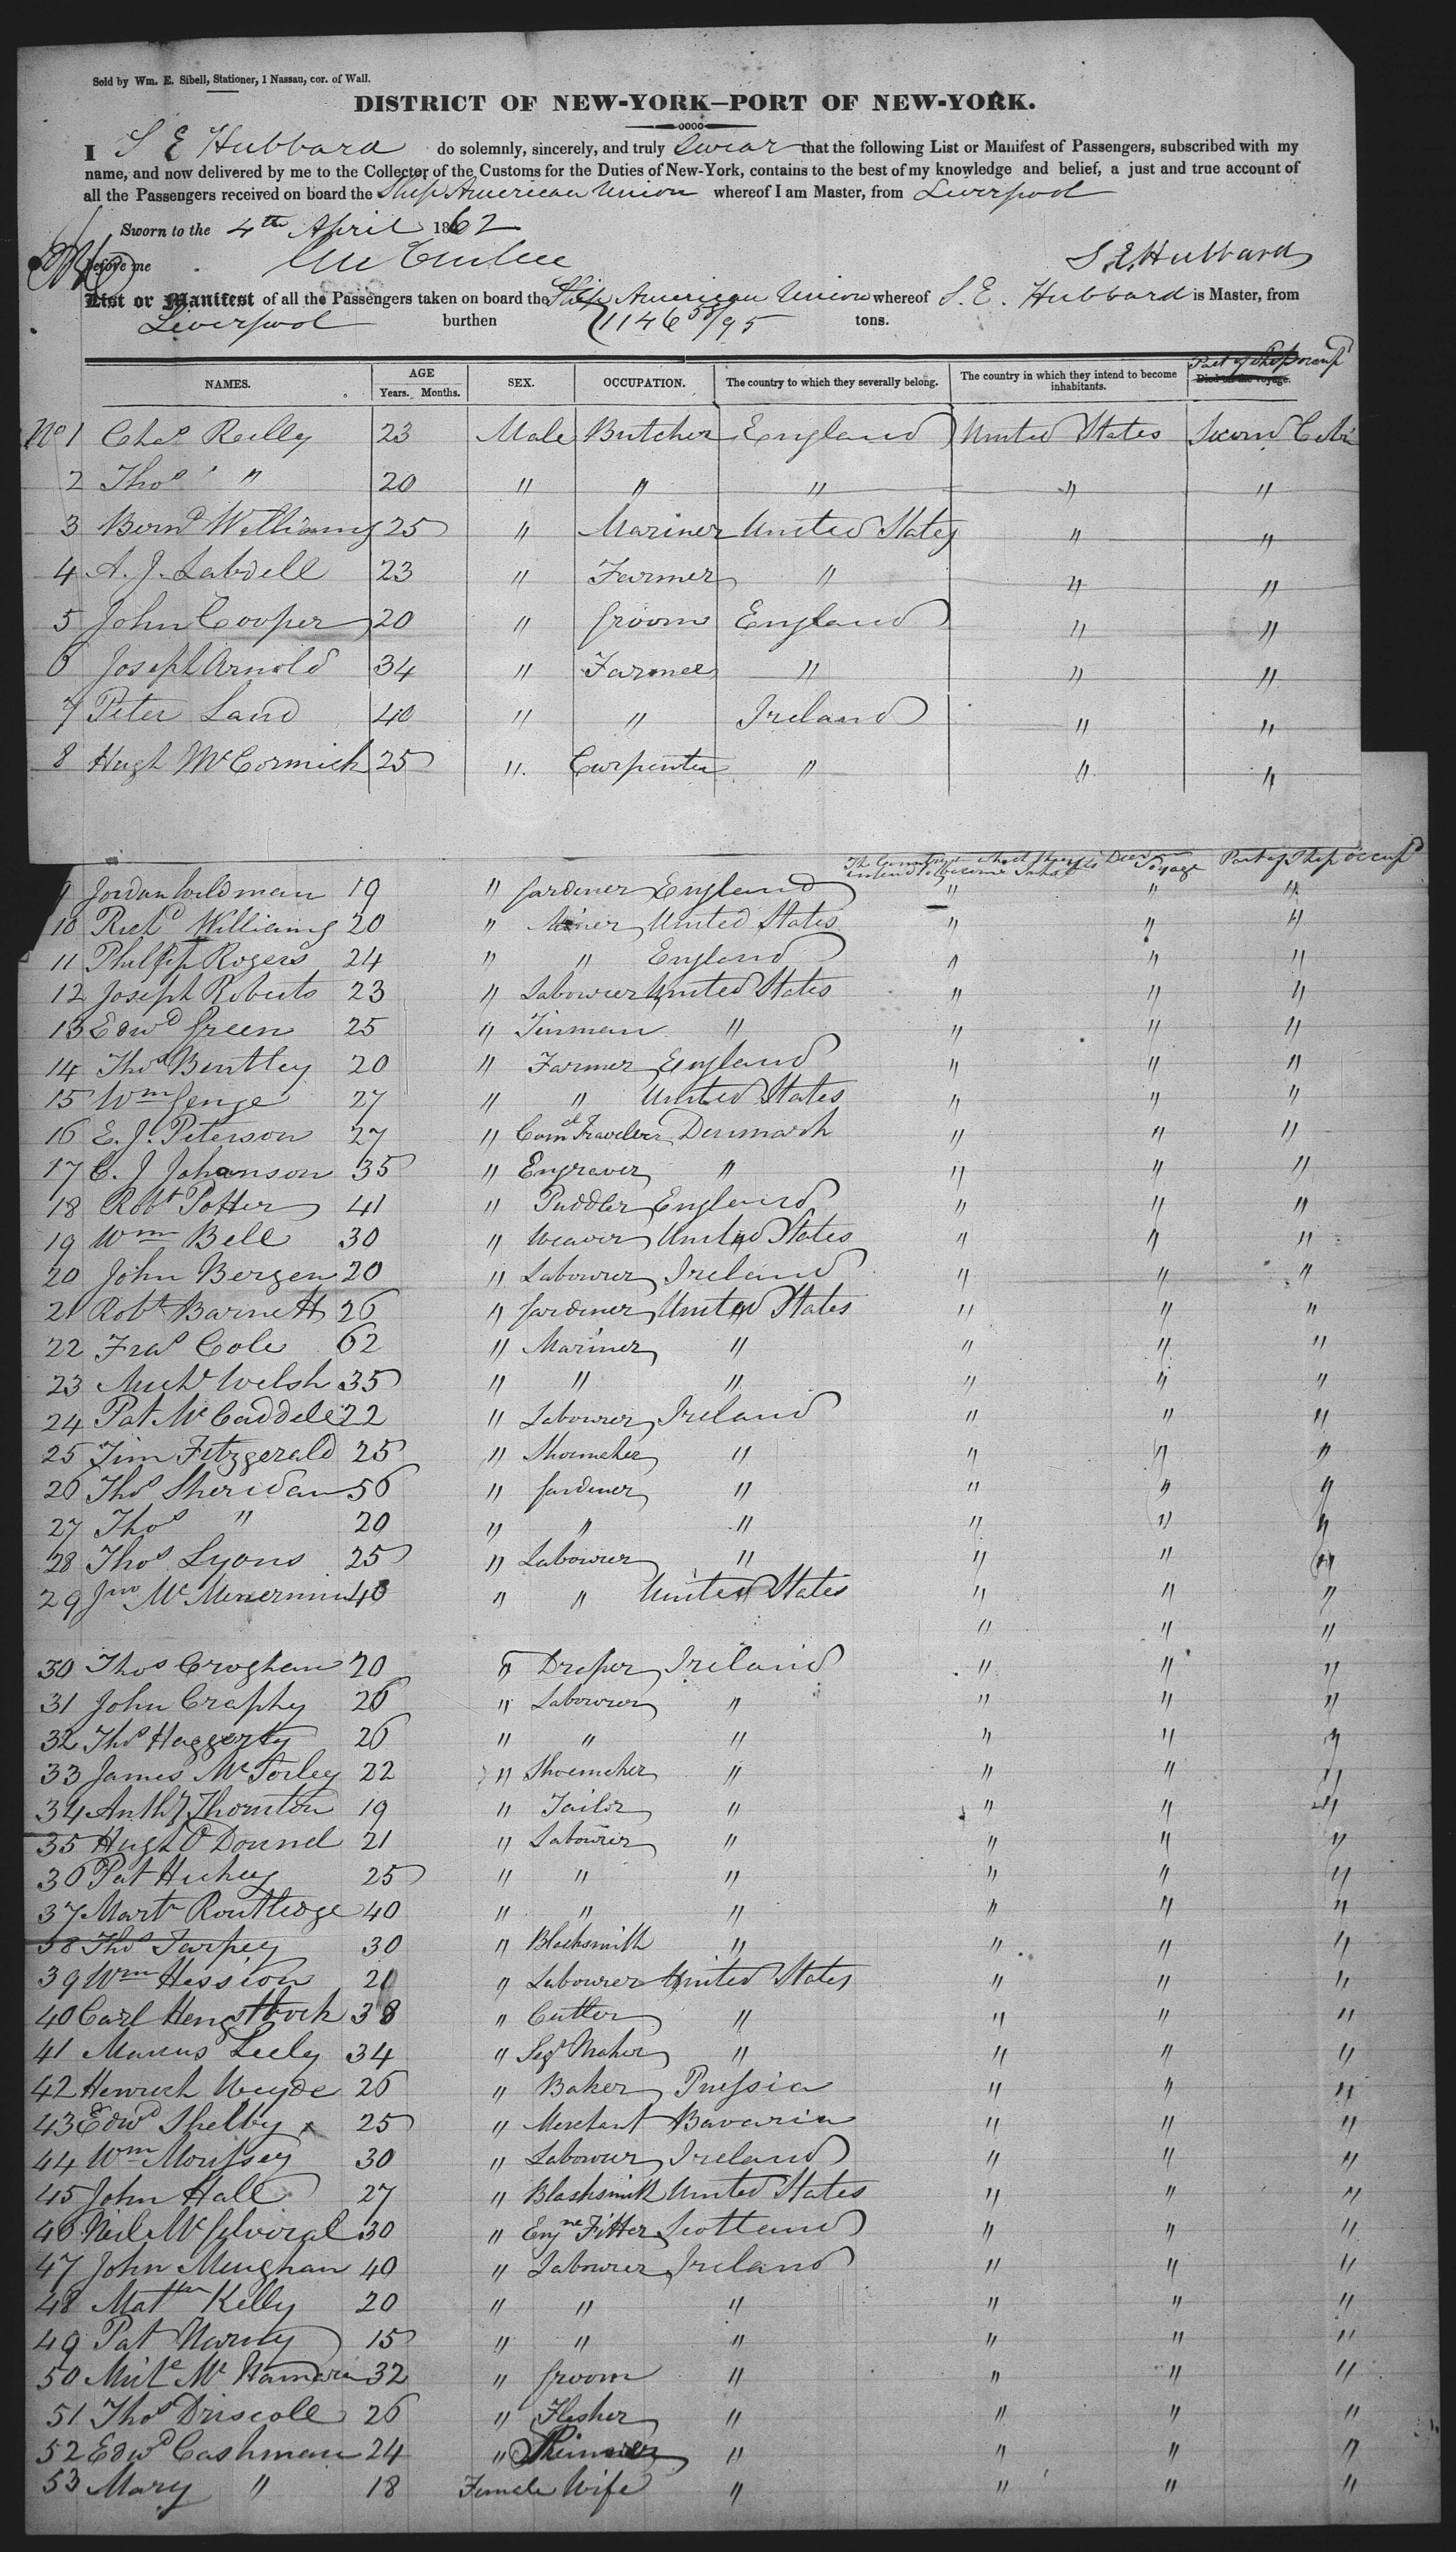 Sold by Wm. E. Sibell, Stationer, 1 Nassau, cor. of Wall.
DISTRICT OF NEW-YORK—PORT OF NEW-YORK.
I S E Hubbard do solemnly, sincerely, and truly Swear that the following List or Manifest of Passengers, subscribed with my
name, and now delivered by me to the Collector of the Customs for the Duties of New-York, contains to the best of my knowledge and belief, a just and true account of
all the Passengers received on board the Ship American Union whereof I am Master, from Liverpool
Sworn to the 4th April 1862
before me S. E. Hubbard
List or Manifest of all the Passengers taken on board the Ship American Union whereof S. E. Hubbard is Master, from
Liverpool burthen 1146 58/95 tons.
NAMES. AGE Years. Months. SEX. OCCUPATION. The country to which they severally belong. The country in which they intend to become inhabitants. Died on the voyage. Part of Ship occupd
No 1 Chas Reilly 23 Male Butcher England United States Second Cabi
2 Thos " 20 " " " " "
3 Bernd Williams 25 " Mariner United States " "
4 A. J. Labdell 23 " Farmer " " "
5 John Cooper 20 " Groom England " "
6 Joseph Arnold 34 " Farmer " " "
7 Peter Land 40 " " Ireland " "
8 Hugh McCormick 25 " Carpenter " " "
The Country in which they intend to become Inhabts Died on Voyage Part of Ship occupd
9 Jordan Wildman 19 " Gardener England " " "
10 Richd Williams 20 " Miner United States " " "
11 Phillip Rogers 24 " " England " " "
12 Joseph Roberts 23 " Labourer United States " " "
13 Edwd Green 25 " Tinman " " " "
14 Thos Bentley 20 " Farmer England " " "
15 Wm Genge 27 " " United States " " "
16 E. J. Peterson 27 " Comel Traveler Denmark " " "
17 C. J Johanson 35 " Engraver " " " "
18 Robt Potter 41 " Puddler England " " "
19 Wm Bell 30 " Weaver United States " " "
20 John Bergen 20 " Labourer Ireland " " "
21 Robt Barnett 26 " Gardener United States " " "
22 Fras Cole 62 " Mariner " " " "
23 Michl Welsh 35 " " " " " "
24 Pat McCaddele 22 " Labourer Ireland " " "
25 Tim Fitzgerald 25 " Shoemaker " " " "
26 Thos Sheridan 56 " Gardener " " " "
27 Thos " 20 " " " " " "
28 Thos Lyons 25 " Labourer " " " "
29 Jno Mc 40 " " United States " " "
" " "
30 Thos Croghan 20 " Draper Ireland " " "
31 John Craphy 26 " Labourer " " " "
32 Thos Haggerty 26 " " " " " "
33 James McSorley 22 " Shoemaker " " " "
34 Anthy Thornton 19 " Tailor " " " "
35 Hugh O Donnel 21 " Labourer " " " "
36 Pat Hickey 25 " " " " " "
37 Martn Routledge 40 " " " " " "
38 Thos Tarpey 30 " Blacksmith " " " "
39 Wm Hession 21 " Labourer United States " " "
40 Carl Hengstbock 38 " Cutler " " " "
41 Marcus Leely 34 " Segr Maker " " " "
42 Henrich Weyde 26 " Baker Prussia " " "
43 Edwd Shelby 25 " Merchant Bavaria " " "
44 Wm Morissey 30 " Labourer Ireland " " "
45 John Hall 27 " Blacksmith United States " " "
46 Neil McGilvoral 30 " Engne Fitter Scotland " " "
47 John Meughan 40 " Labourer Ireland " " "
48 Kelly 20 " " " " " "
49 Pat 15 " " " " " "
50 McNamara 32 " Groom " " " "
51 Thos Driscoll 26 " Flesher " " " "
52 Edwd Cashman 24 " " " " "
53 Mary " 18 Female Wife " " " "